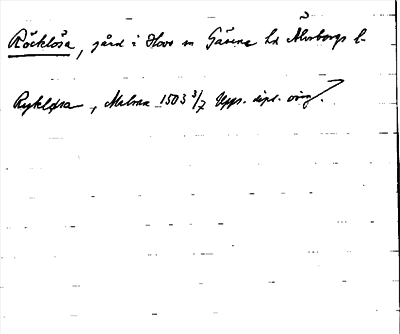 Röcklösa, gård i Hovs sn Gäsene hd Älvsborgs l-
Rykløsa, Malma 1503 3/7 Upps. dipl. orig.